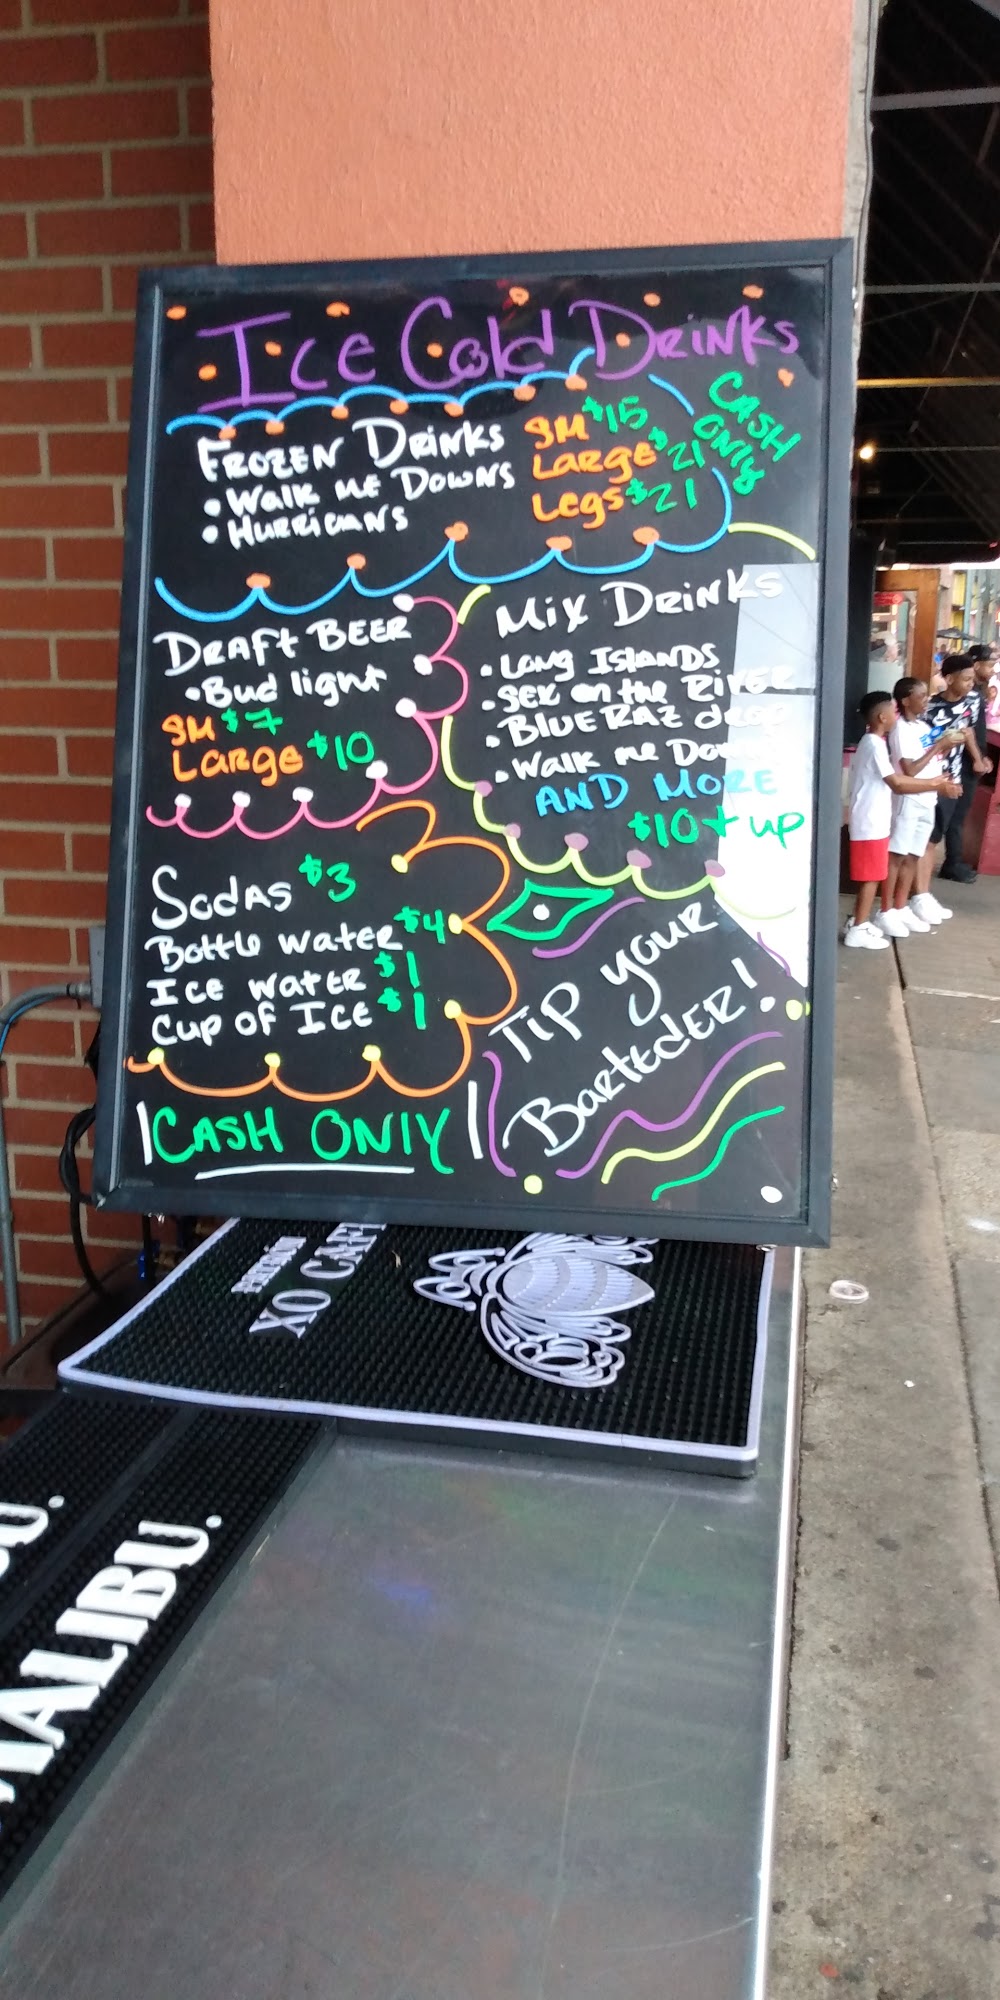 Ice Cold Drinks
FROZEN DRINKS
• Walk me DOWNS
• HURRICANS
SM $15
LARGE $21
Legs $21
CASH
ONLY
DRAFT BEER
• Bud light
SM $7
LARGE $10
MIX DRINKS
• LONG ISLANDS
• SEX on the RIVER
• BLUE RAZ drop
• Walk me Down
AND MORE
$10 + up
SODAS $3
Bottle water $4
ICE WATER $1
Cup of ICE $1
CASH ONLY
Tip your
Barteder!
PATRÓN
XO CAFE
MALIBU.